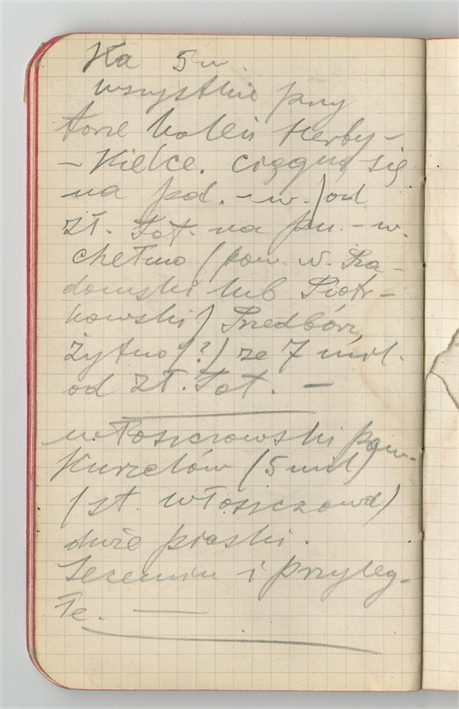 Na 5 w.
wszystkie przy
torze kolei Herby-
-Kielce. ciągną się
na pd. - w.) od
Zł. Pot. na pn. - w.
Chełmo (pow. N. Ra-
domski lub Piotr-
kowski) Przedbórz,
Żytno (?) ze 7 mil.
od Zł. Pot. —
włoszczowski pow.
Kurzelów (5 mil)
(st. Włoszczowa)
duże piaski.
Secemin i przyleg-
łe. —